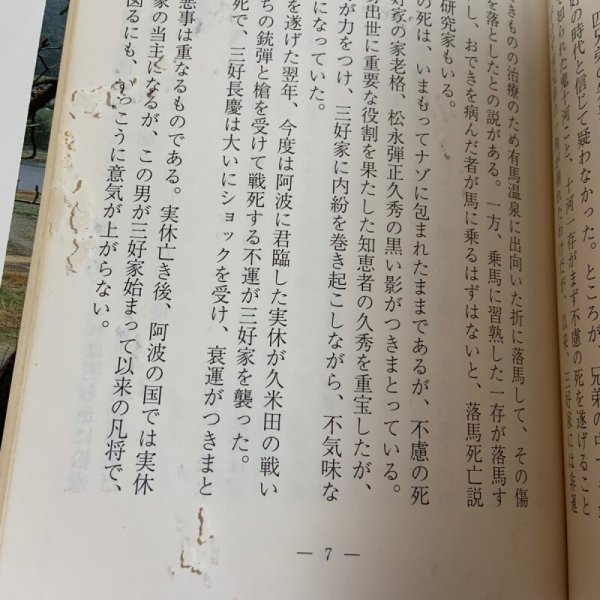 四兄弟の
好の時代と信じて疑わなかった。ところが、兄弟の中
知られた鬼十河こと、十河一存がまず不慮の死を遂げること
以来、三好家には非運
きものの治療のため有馬温泉に出向いた折に落馬して、その傷
を落としたとの説がある。一方、乗馬に習熟した一存が落馬す
し、おできを病んだ者が馬に乗るはずはないと、落馬死亡説
研究家もいる。
の死は、いまもってナゾに包まれたままであるが、不慮の死
好家の家老格、松永弾正久秀の黒い影がつきまとっている。
出世に重要な役割を果たした知恵者の久秀を重宝したが、
が力をつけ、三好家に内紛を巻き起こしながら、不気味な
なっていた。
を遂げた翌年、今度は阿波に君臨した実休が久米田の戦い
ちの銃弾と槍を受けて戦死する不運が三好家を襲った。
死で、三好長慶は大いにショックを受け、衰運がつきまと
悪事は重なるものである。実休亡き後、阿波の国では実休
家の当主になるが、この男が三好家始まって以来の凡将で、
図るにも、いっこうに意気が上がらない。
— 7 —